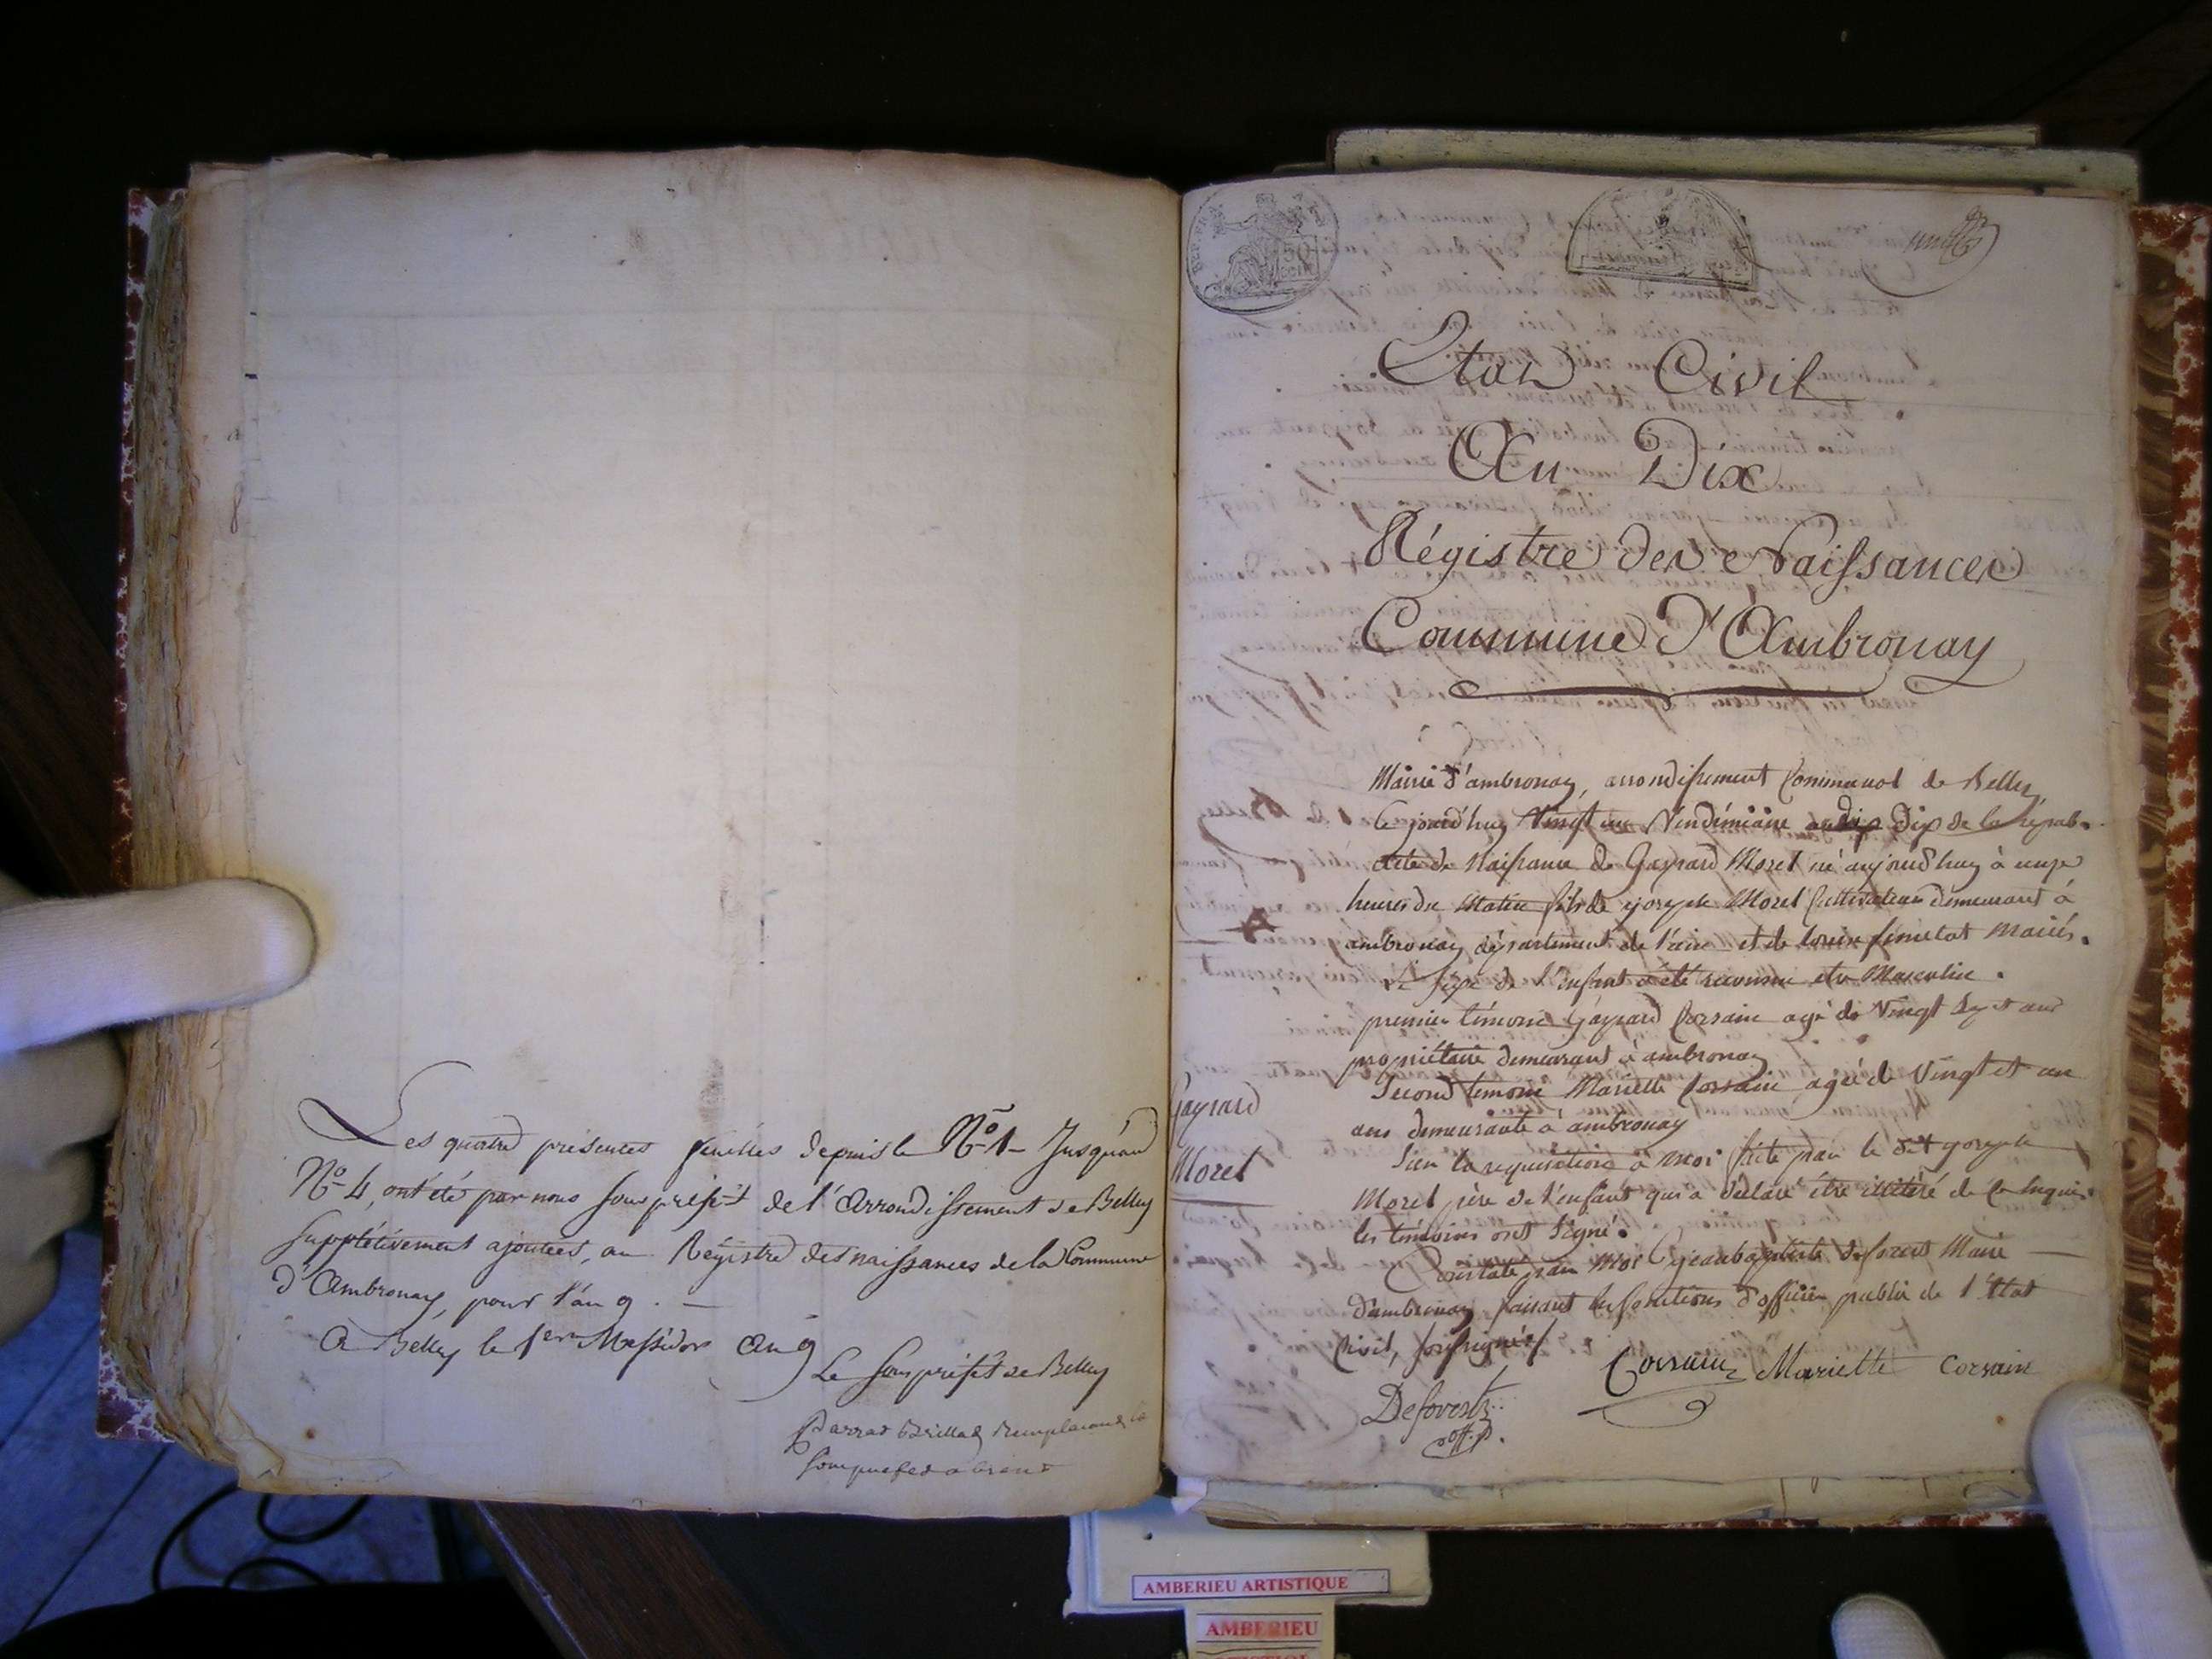 Les quatre présentes feuilles depuis le N° 1 Jusqu'au
N° 4, ont été par nous sous préfet de l'Arrondissement de Belley
supplétivement ajoutées, au Régistre des naissances de la Commune
d'Ambronay, pour l'an 9. —
A Belley le 1er Messidor an 9
Le sous préfet de Belley
Remplacant le
sous prefet absent
REP. FRA.
50
cent
Etat Civil
An Dix
Régistre des Naissances
Commune d'Ambronay
Mairie d'ambronay, arrondissement Communal de Belley
Ce jourd'huy Vingt un Vendémiaire an dix de la répub.
acte de Naissance de Gaspard Morel né aujourd'huy à onze
heures du Matin fils de joseph Morel Cultivateur demeurant à
ambronay département de l'ain et de mariés.
Le sexe de l'enfant a été reconnu etre Masculin.
premier témoin Gaspard Corsain agé de Vingt sept ans
propriétaire demeurant à ambronay
Second témoin Mariette Corsain agée de Vingt et un
ans demeurante à ambronay
Gaspard
Morel
Sur la requisition à moi faite par le dit joseph
Morel père de l'enfant qui a déclaré être illitéré de ce Enquis
les témoins ont signé.
Constaté par Moi jean baptiste deforest Maire
d'ambronay faisant les fonctions d'officier public de l'Etat
Civil, soussigné
Corsain Mariette Corsain
Deforest
off. p.
AMBERIEU ARTISTIQUE
AMBERIEU